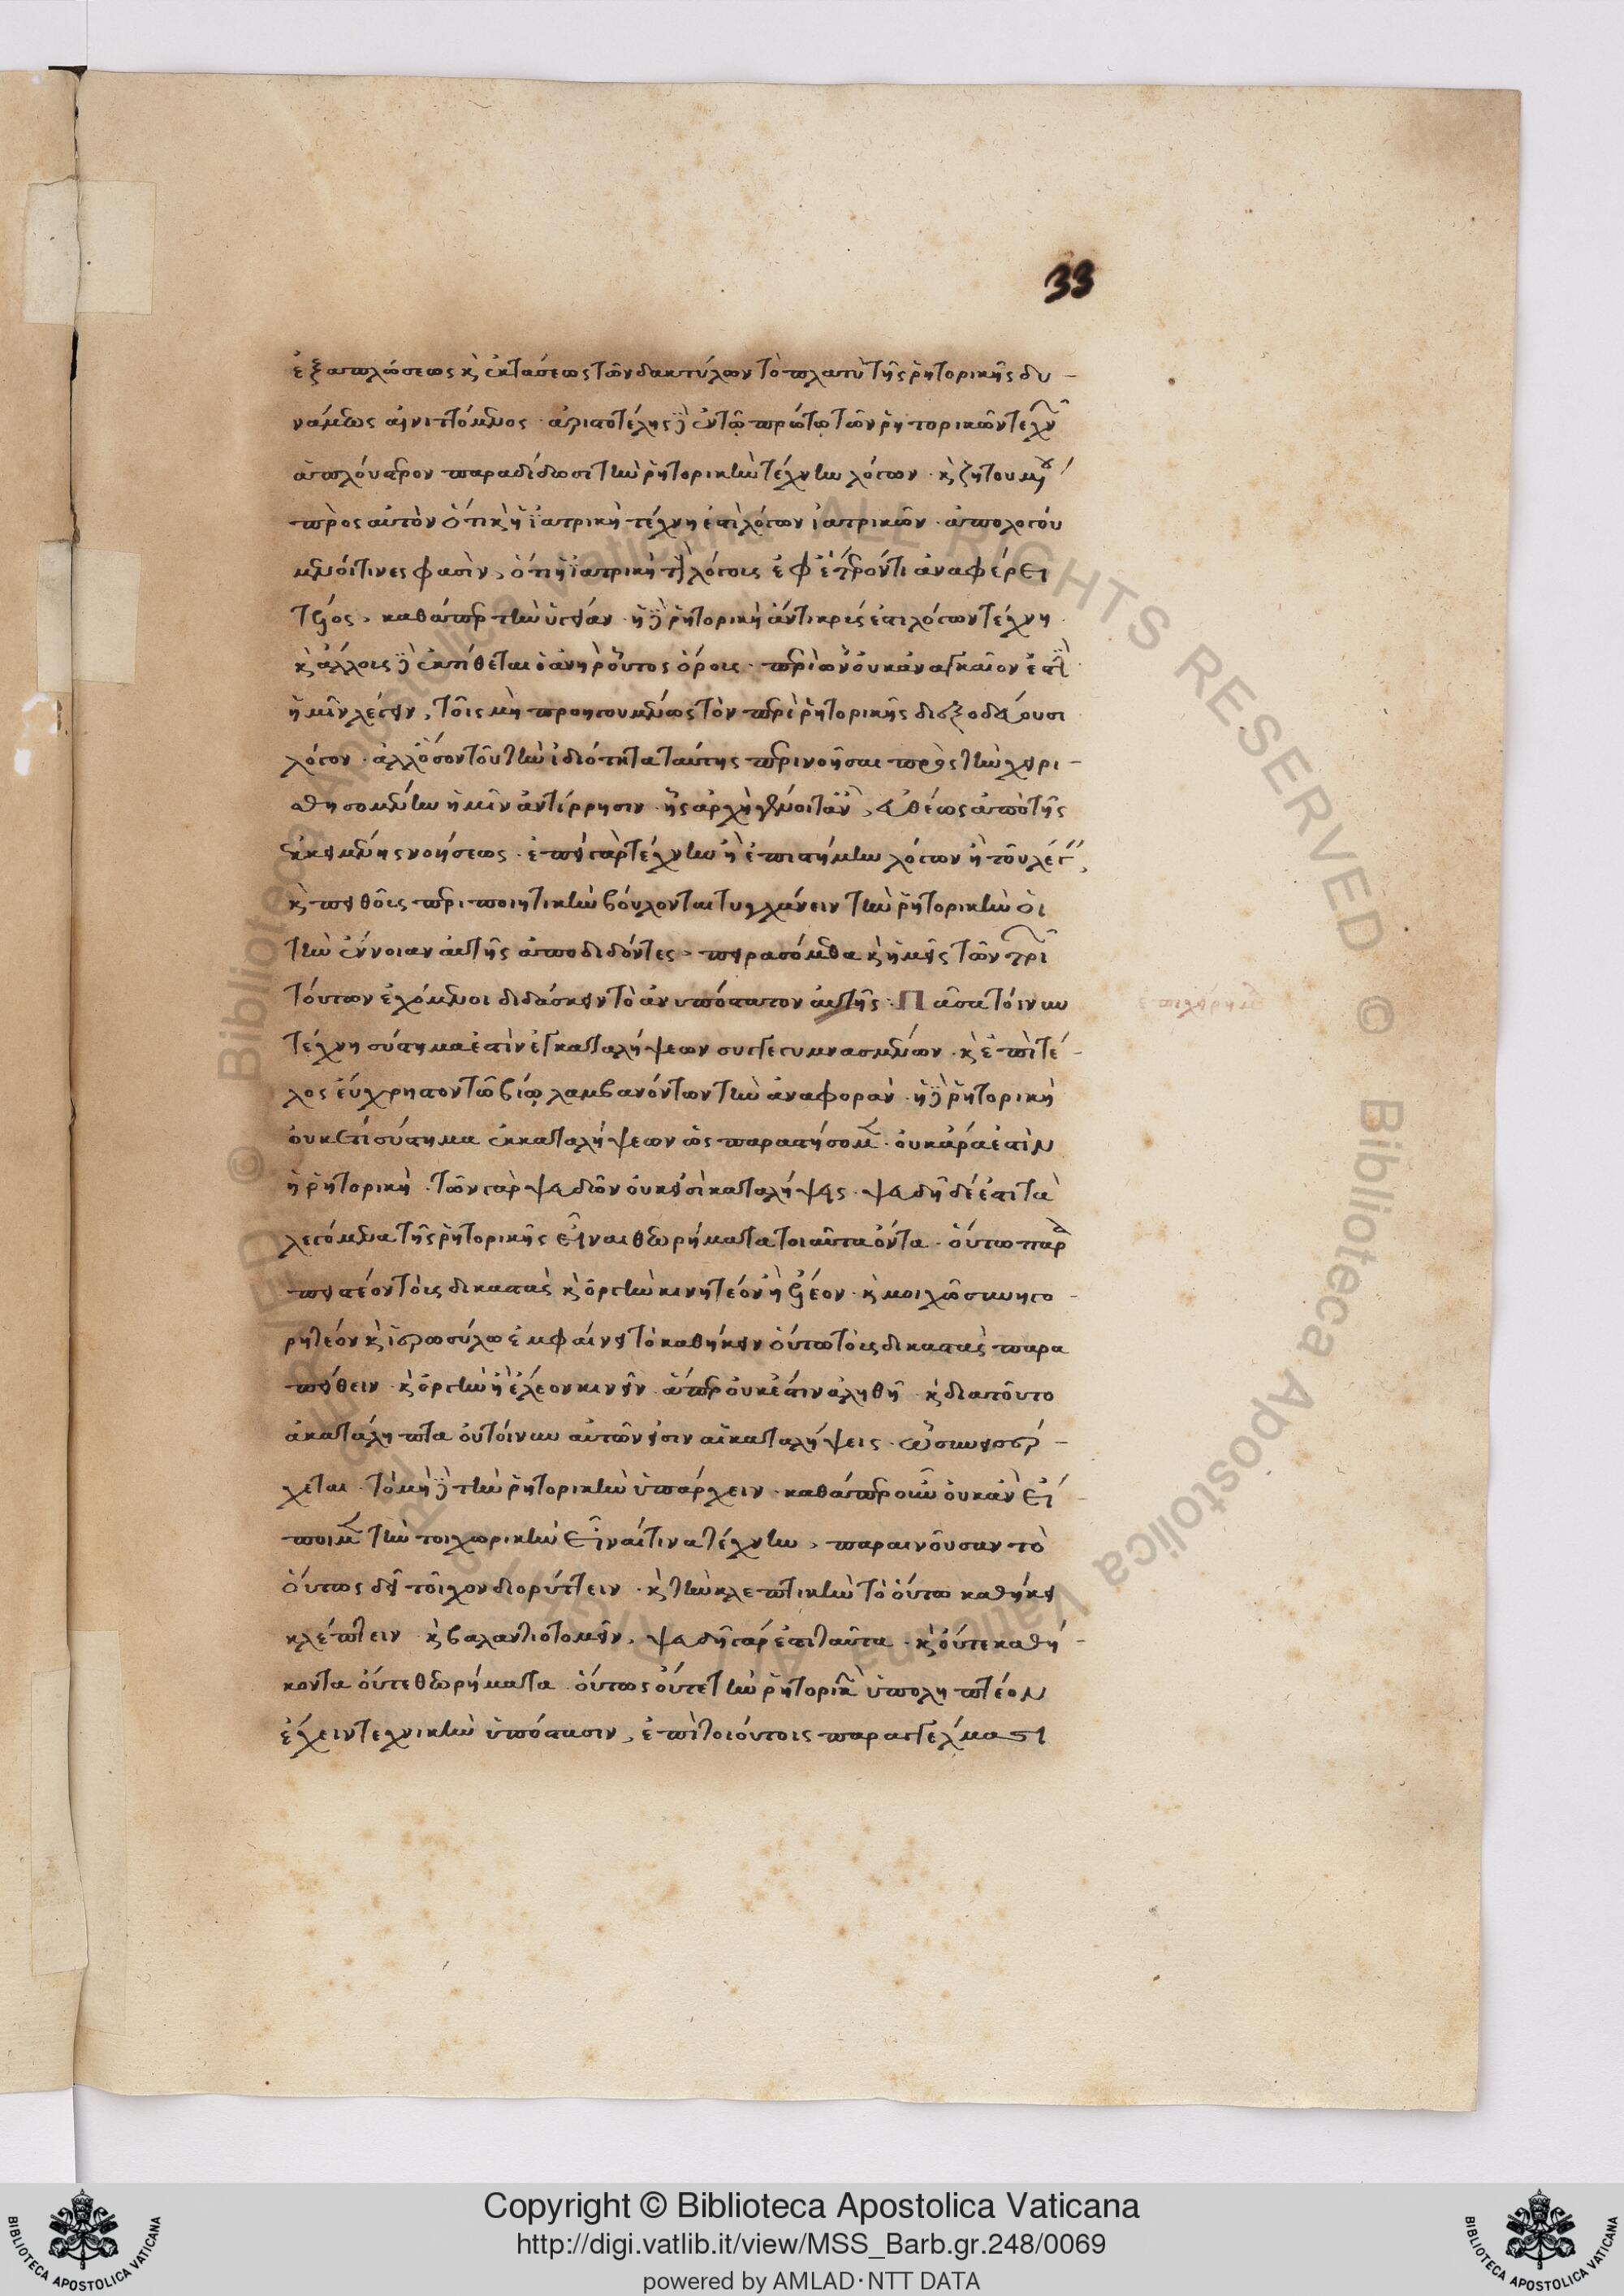 33
ἐξαπλώσεως κ ἐκτάσεως τῶν δακτύλων τὸ πλατὺ τῆς ῥητορικῆς δυ-
νάμεως αἰνιττόμενος · ἀριστοτέλης δὲ ἐν τῷ πρώτῳ τῶν ῥητορικῶν τεχνῶν
ἁπλούστερον παραδίδωσι τὴν ῥητορικὴν τέχνην λόγων · κ ζητουμένου
πρὸς αὐτὸν ὅτι κ ἡ ἰατρικὴ τέχνη ἐστὶ λόγων ἰατρικῶν · ἀπολογού
μενοί τινες φασὶν, ὅτι ἡ ἰατρικὴ τοὺς λόγους ἐφ' ἕτερόν τι ἀναφέρει
τέλος, καθάπερ τὴν ὑγείαν · ἡ δὲ ῥητορικὴ ἄντικρυς ἐστὶ λόγων τέχνη ·
κ ἄλλους δὲ ἐκτίθεται ὁ ἀνὴρ οὗτος ὅρους · περὶ ὧν οὐκ ἀναγκαῖον ἐστὶ
ἡμῖν λέγειν, τοῖς μὴ προηγουμένως τὸν περὶ ῥητορικῆς διεξοδεύουσι
λόγον · ἀλλ' ὅσον τοῦ τὴν ἰδιότητα ταύτης περινοῆσαι πρὸς τὴν χειρι-
σθησομένην ἡμῖν ἀντίρρησιν · ἧς ἀρχὴ γένοιτ' ἂν, εὐθέως ἀπὸ τῆς
ἐκκειμένης νοήσεως · ἐπεὶ γὰρ τέχνην ἢ ἐπιστήμην λόγων ἢ τοῦ λέγειν,
κ πειθοῦς περιποιητικὴν βούλονται τυγχάνειν τὴν ῥητορικὴν οἱ
τὴν ἔννοιαν αὐτῆς ἀποδιδόντες, πειρασόμεθα κ ἡμεῖς τῶν τριῶν
τούτων ἐχόμενοι διδάσκειν τὸ ἀνυπόστατον αὐτῆς · Πᾶσα τοίνυν
τέχνη σύστημα ἐστὶν ἐγκαταλήψεων συγγεγυμνασμένων · κ ἐπὶ τέ-
λος εὔχρηστον τῷ βίῳ λαμβανόντων τὴν ἀναφορὰν · ἡ δὲ ῥητορικὴ
οὐκ ἔστι σύστημα ἐκ καταλήψεων ὡς παραστήσομεν · οὐκ ἄρα ἐστὶν
ἡ ῥητορικὴ · τῶν γὰρ ψευδῶν οὐκ εἰσὶ καταλήψεις · ψευδῆ δέ ἐστι τὰ
λεγόμενα τῆς ῥητορικῆς εἶναι θεωρήματα τοιαῦτα ὄντα · οὕτω παρα
πειστέον τοὺς δικαστὰς κ ὀργὴν κινητέον ἢ ἔλεον · κ μοιχῷ συνηγο-
ρητέον κ ἱεροσύλῳ ἐμφαίνει τὸ καθήκειν οὕτω τοὺς δικαστὰς παρα
πείθειν · κ ὀργὴν ἢ ἔλεον κινεῖν · ἅπερ οὐκ ἔστιν ἀληθῆ · κ διατοῦτο
ἀκατάληπτα οὐ τοίνυν αὐτῶν εἰσιν αἱ καταλήψεις · ᾧ συνεισέρ-
χεται τὸ μὴ δὲ τὴν ῥητορικὴν ὑπάρχειν · καθάπερ οὖν οὐκ ἂν εἴ-
ποιμεν τὴν τοιχωρικὴν εἶναί τινα τέχνην, παραινοῦσαν τὸ
οὕτως δεῖ τοῖχον διορύττειν · κ τὴν κλεπτικὴν τὸ οὕτω καθήκει
κλέπτειν κ βαλαντιοτομεῖν, ψευδῆ γάρ ἐστι ταῦτα · κ οὔτε καθή-
κοντα οὔτε θεωρήματα · οὕτως οὔτε τὴν ῥητορικὴν ὑποληπτέον
ἔχειν τεχνικὴν ὑπόστασιν, ἐπὶ τοιούτοις παραγγέλμασι
Copyright © Biblioteca Apostolica Vaticana
http://digi.vatlib.it/view/MSS_Barb.gr.248/0069
powered by AMLAD·NTT DATA
BIBLIOTECA APOSTOLICA VATICANA
BIBLIOTECA APOSTOLICA VATICANA